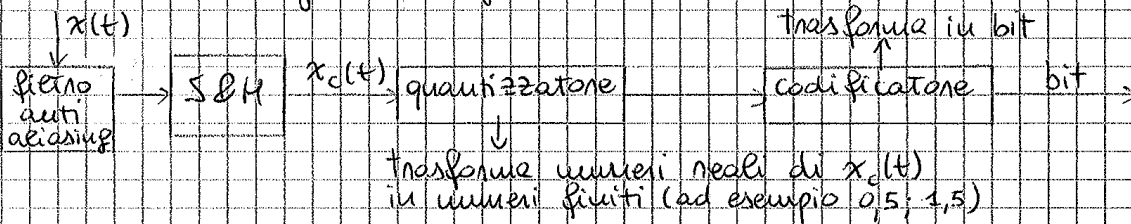 x(t)
trasforma in bit
filtro
anti
aliasing
S&H
x_c(t)
quantizzatore
codificatore
bit
trasforma numeri reali di x_c(t)
in numeri finiti (ad esempio 0,5; 1,5)